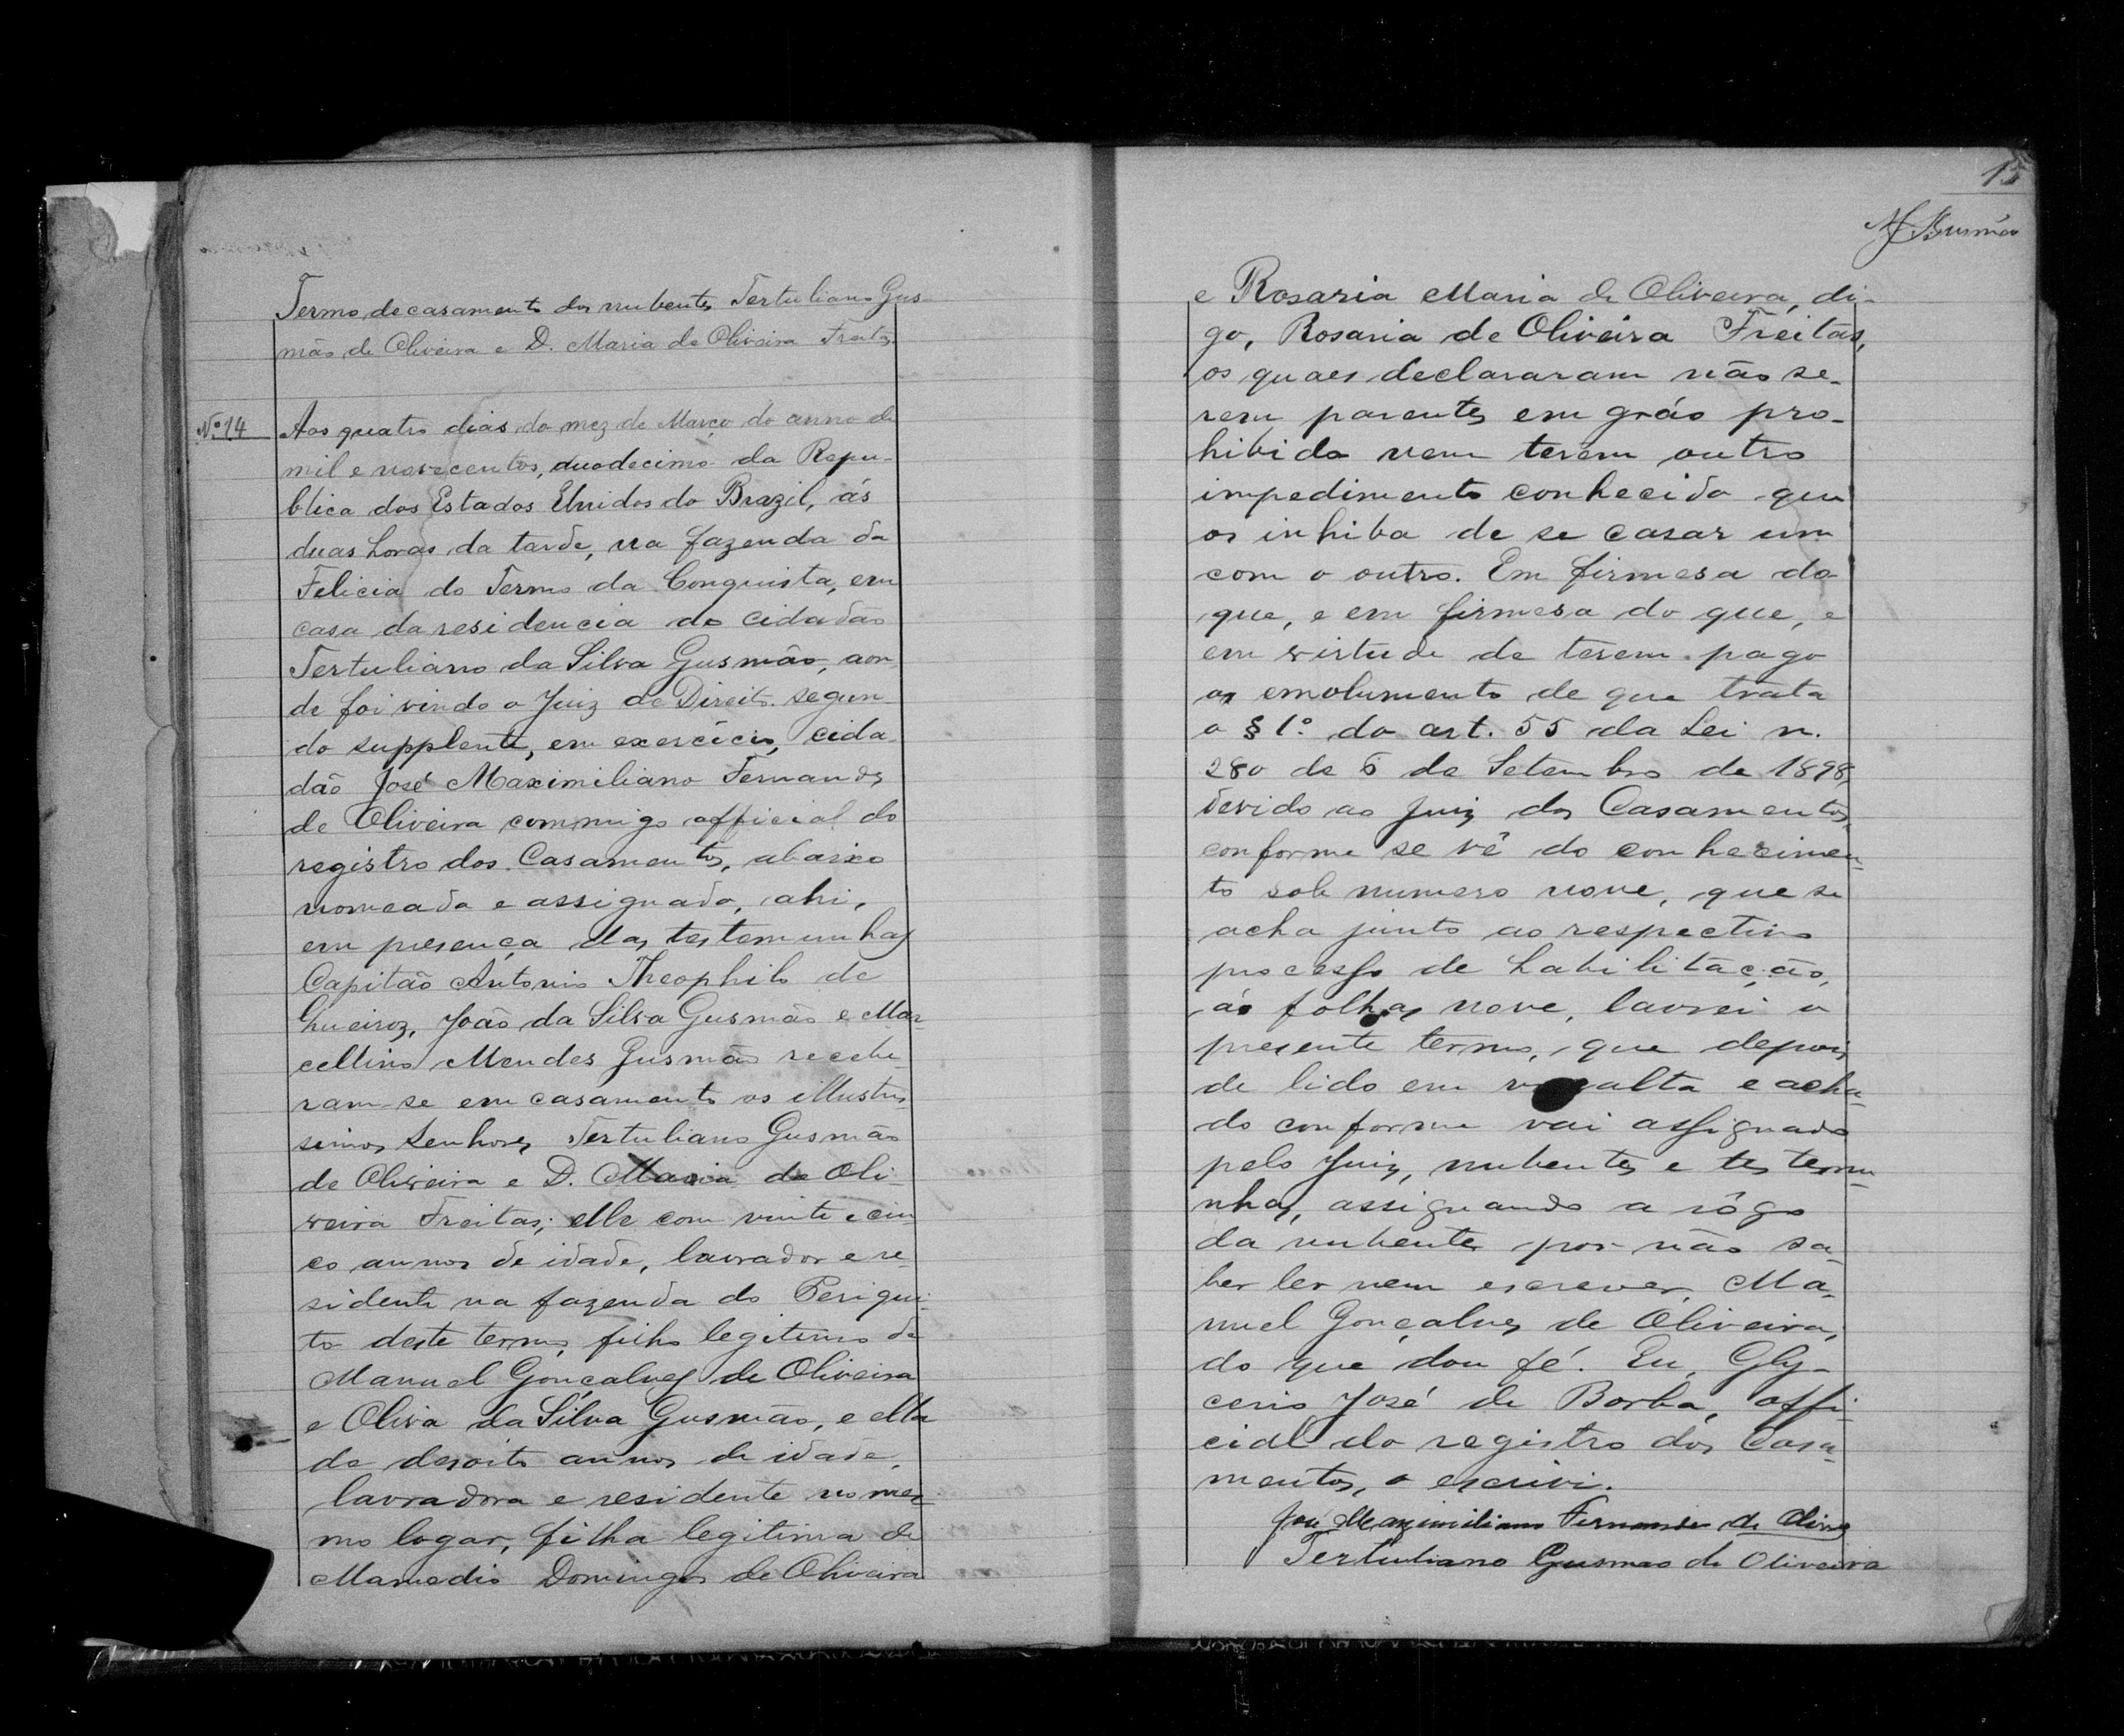 Termo de casamento dos nubentes Tertuliano Gus-
mão de Oliveira e D. Maria de Oliveira Freitas.
Nº 14
Aos quatro dias do mez de Março do anno de
mil e novecentos, duodecimo da Repu-
blica dos Estados Unidos do Brazil, ás
duas horas da tarde, na fazenda da
Felicia do Termo da Conquista, em
casa da residencia do cidadão
Tertuliano da Silva Gusmão, aon-
de foi vindo o Juiz de Direito segun-
do supplente, em exercicio, cida-
dão José Maximiliano Fernandes
de Oliveira commigo official do
registro dos Casamentos, abaixo
nomeado e assignado, ahi,
em presença das testemunhas
Capitão Antonio Theophilo de
Queiroz, João da Silva Gusmão e Mar-
cellino Mendes Gusmão recebe-
ram-se em casamento os illustris-
simos Senhores Tertuliano Gusmão
de Oliveira e D. Maria de Oli-
veira Freitas; elle com vinte e cin-
co annos de idade, lavrador e re-
sidente na fazenda do Periqui-
to deste termo, filho legitimo de
Manuel Gonçalves de Oliveira
e Oliva da Silva Gusmão, e ella
de desoito annos de idade,
lavradora e residente no mes-
mo logar, filha legitima de
Mamedio Domingos de Oliveira
15
e Rosaria Maria de Oliveira, di-
go, Rosaria de Oliveira Freitas,
os quaes declararam não se-
rem parentes em gráo pro-
hibido nem terem outro
impedimento conhecido que
os inhiba de se casar um
com o outro. Em firmesa do
que, e em firmesa do que, e
em virtude de terem pago
os emolumento de que trata
o § 1º do art. 55 da Lei n.
280 de 6 de Setembro de 1898,
devido ao Juiz dos Casamentos,
conforme se vê do conhecimen-
to sob numero nove, que se
acha junto ao respectivo
processo de habilitação,
ás folhas nove, lavrei o
presente termo, que depois
de lido em voz alta e acha-
do conforme vai assignado
pelo Juiz, nubentes e testemu-
nhas, assignando a rôgo
da nubente por não sa-
ber ler nem escrever, Ma-
nuel Gonçalves de Oliveira,
do que dou fé. Eu, Gly-
cerio José de Borba, offi-
cial do registro dos Casa-
mentos, o escrivi.
José Maximiliano Fernandes de Olivra
Tertuliano Gusmao de Oliveira